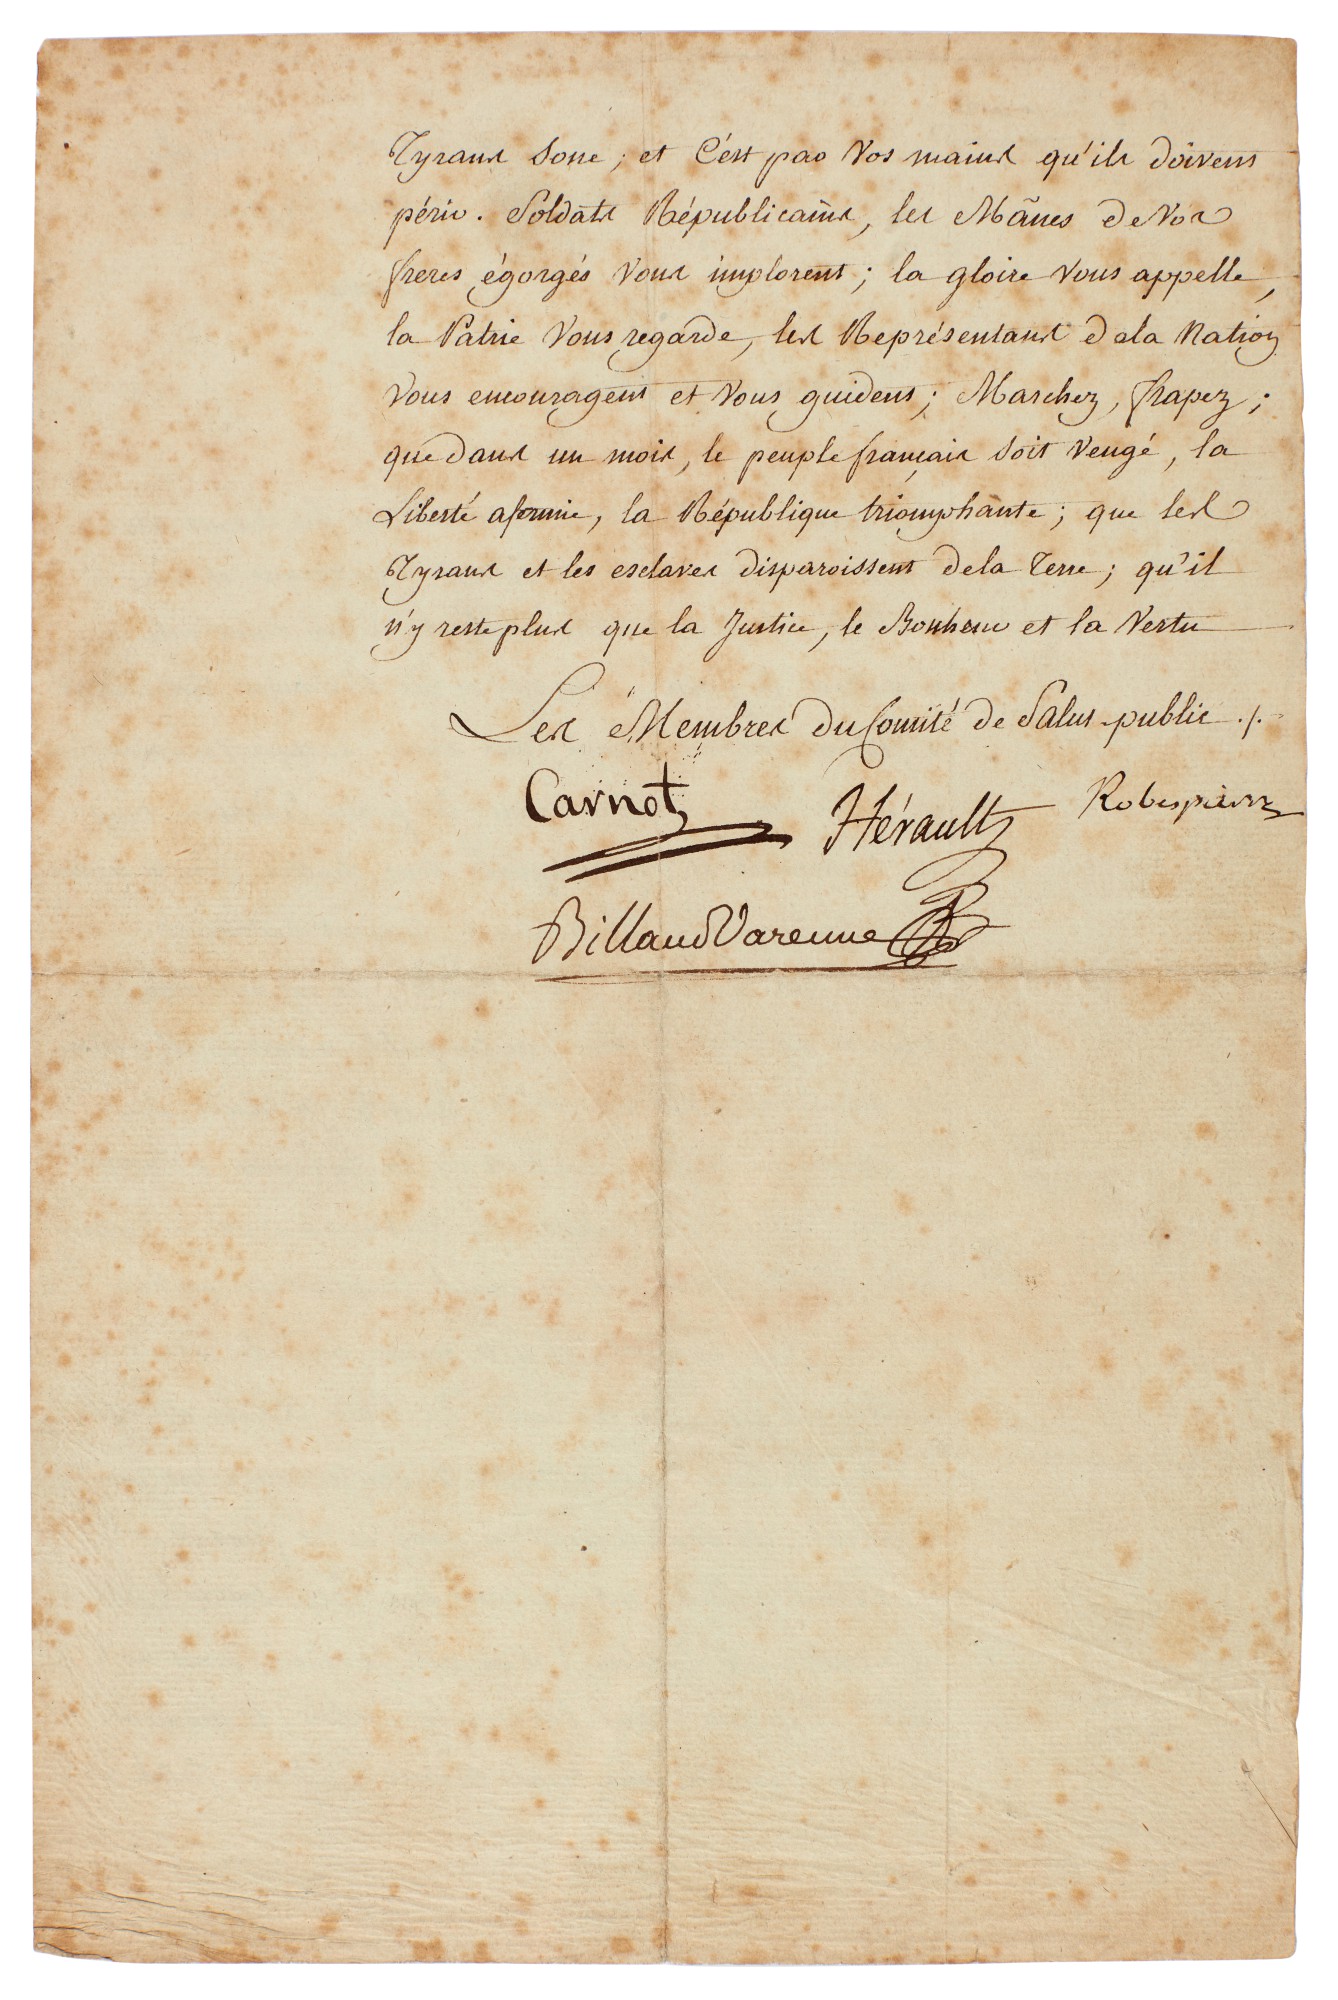 Tyrans sone; et C'est par Vos mains qu'ils doivent
périr. Soldats Républicains, les Mânes de Vos
freres égorgés Vous implorent; la gloire Vous appelle,
la Patrie Vous regarde, les Représentans dela Nation
Vous encouragent et Vous guident; Marchez, frapez;
que dans un mois, le peuple français soit Vengé, la
Liberté afermie, la République triomphante; que les
Tyrans et les esclaves disparoissent dela Terre; qu'il
n'y reste plus que la Justice, le Bonheur et la Vertu
Les Membres du Comité de Salut public ./.
Carnot
Hérault
Robespierre
Billaud Varenne